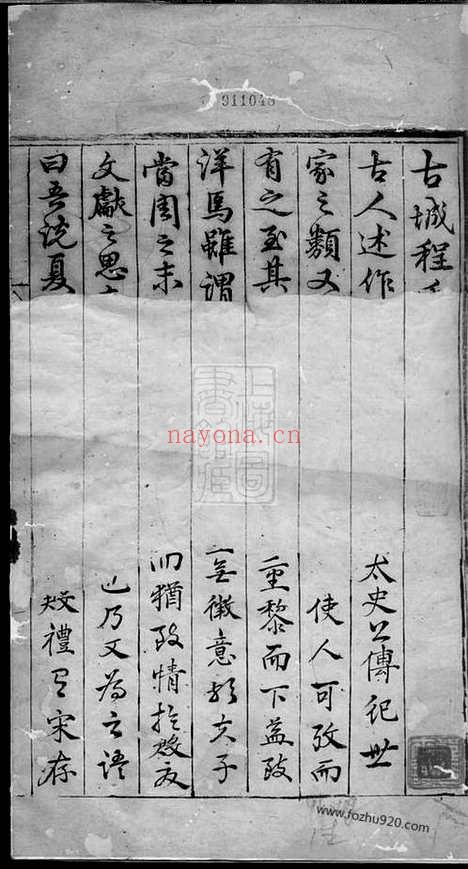 911048
古城程
古人述作
太史公傳記世
家之類又
使人可攷而
有之至其
重黎而下益攷
洋焉雖謂
無徵意於夫子
當周之末
而猶致情於殷夏
文獻之思
也乃又為之語
曰吾說夏
殷禮有宋存
nayona.cn
www.fozhu920.com